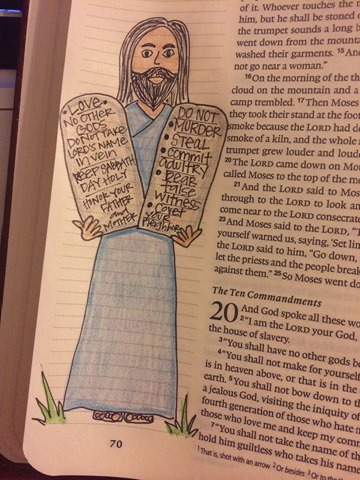 LOVE
NO OTHER
GODS
DO NOT TAKE
LORD'S NAME
IN VEIN
KEEP SABBATH
DAY HOLY
HONOR YOUR
FATHER
and
MOTHER
DO NOT
MURDER
STEAL
commit
adultry
bear
false
witness
covet
your
neighbors
70
of it. Whoever touches the
him, but he shall be stoned
the trumpet sounds a long b
went down from the mounta
washed their garments. 15 An
not go near a woman."
16 On the morning of the th
cloud on the mountain and a
camp trembled. 17 Then Moses
they took their stand at the foot
smoke because the LORD had d
smoke of a kiln, and the whole
trumpet grew louder and loud
20 The LORD came down on Mou
called Moses to the top of the m
21 And the LORD said to Mos
through to the LORD to look an
come near to the LORD consecrat
23 And Moses said to the LORD, "T
yourself warned us, saying, 'Set lim
the LORD said to him, "Go down,
let the priests and the people break
against them." 25 So Moses went do
The Ten Commandments
20 And God spoke all these w
2 "I am the LORD your God,
the house of slavery.
3 "You shall have no other gods be
4 "You shall not make for yourself
is in heaven above, or that is in the
earth. 5 You shall not bow down to th
a jealous God, visiting the iniquity of
fourth generation of those who hate m
those who love me and keep my comm
7 "You shall not take the name of th
hold him guiltless who takes his nam
1 That is, shot with an arrow 2 Or besides 3 Or to the